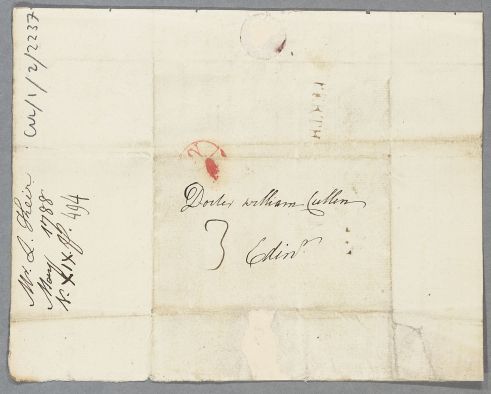 Doctor William Cullen
3
Edinr.
Mr. Skeir
May 1788
No. XIX. p. 494
CUL/1/2/2237